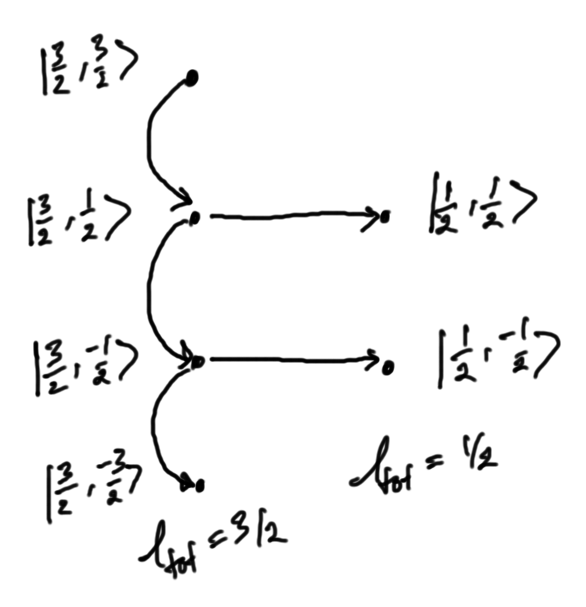 |3/2, 3/2⟩
|3/2, 1/2⟩
|1/2, 1/2⟩
|3/2, -1/2⟩
|1/2, -1/2⟩
|3/2, -3/2⟩
l_tot = 1/2
l_tot = 3/2